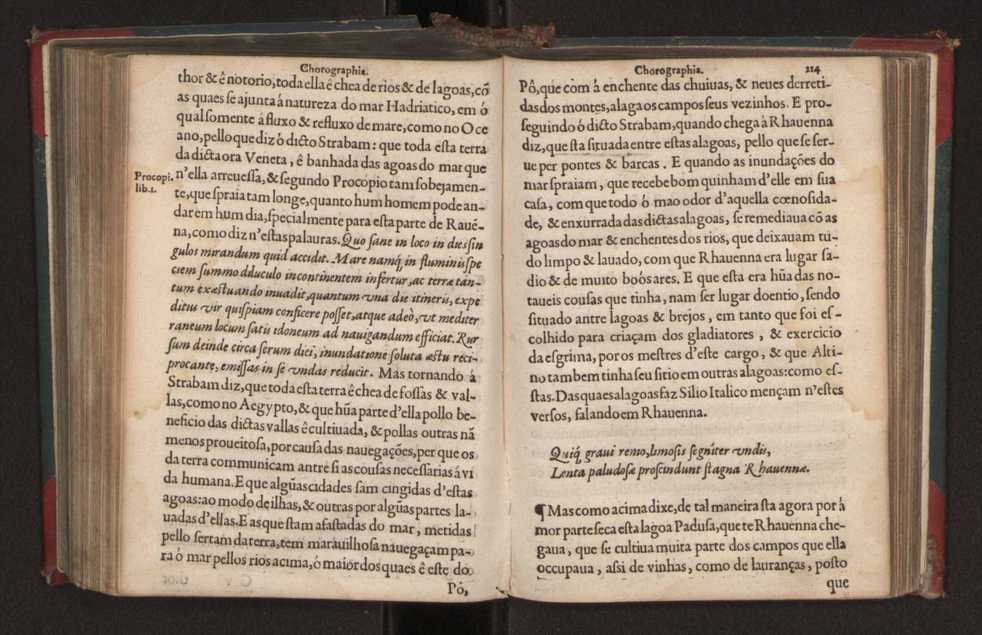 Chorographia.
thor & ê notorio, toda ella ê chea de rios & de lagoas, cõ
as quaes se ajunta â natureza do mar Hadriatico, em ó
qual somente á fluxo & refluxo de mare, como no Oce
ano, pello que diz ó dicto Strabam: que toda esta terra
da dicta ora Veneta, ê banhada das agoas do mar que
Procopi. lib.1.
n'ella arreuessa, & segundo Procopio tam sobejamen-
te, que spraia tam longe, quanto hum homem pode an-
dar em hum dia, specialmente para esta parte de Rauê-
na, como diz n'estas palauras. Quo sane in loco in dies sin
gulos mirandum quid accidit. Mare namq́ in fluminis spe
ciem summo diluculo incontinentem infertur, ac terræ tan-
tum exæstuando inuadit, quantum vna die itineris, expe
ditus vir quispiam conficere posset, atque adeò, vt mediter
raneum locum satis idoneum ad nauigandum efficiat. Rur
sum deinde circa serum diei, inundatione soluta æstu reci-
procante, emissas in se vndas reducit. Mas tornando á
Strabam diz, que toda esta terra ê chea de fossas & val-
las, como no Aegypto, & que hũa parte d'ella pollo be-
neficio das dictas vallas ê cultiuada, & pollas outras nã
menos proueitosa, por causa das nauegações, per que os
da terra communicam antre si as cousas necessarias á vi
da humana. E que algũas cidades sam cingidas d'estas
agoas: ao modo de ilhas, & outras por algũas partes la-
uadas d'ellas. E as que stam afastadas do mar, metidas
pello sertam da terra, tem marauilhosa nauegaçam pa-
ra ó mar pellos rios acima, ó maior dos quaes ê este do
Pó,
Chorographia. 114
Pô, que com á enchente das chuiuas, & neues derreti-
das dos montes, alaga os campos seus vezinhos. E pro-
seguindo ó dicto Strabam, quando chega à Rhauenna
diz, que sta situada entre estas alagoas, pello que se ser-
ue per pontes & barcas. E quando as inundações do
mar spraiam, que recebe bom quinham d'elle em sua
casa, com que todo ò mao odor d'aquella cœnosida-
de, & enxurrada das dictas alagoas, se remediaua cõ as
agoas do mar & enchentes dos rios, que deixauam tu-
do limpo & lauado, com que Rhauenna era lugar sa-
dio & de muito boõs ares. E que esta era hũa das no-
taueis cousas que tinha, nam ser lugar doentio, sendo
situado antre lagoas & brejos, em tanto que foi es-
colhido para criaçam dos gladiatores, & exercicio
da esgrima, por os mestres d'este cargo, & que Alti-
no tambem tinha seu sitio em outras alagoas: como es-
stas. Das quaes alagoas faz Silio Italico mençam n'estes
versos, falando em Rhauenna.
Quiq́ graui remo, limosis segniter vndis,
Lenta paludosæ proscindunt stagna Rhauennæ.
¶ Mas como acima dixe, de tal maneira sta agora por á
mor parte seca esta lagoa Padusa, que te Rhauenna che-
gaua, que se cultiua muita parte dos campos que ella
occupaua, assi de vinhas, como de lauranças, posto
que